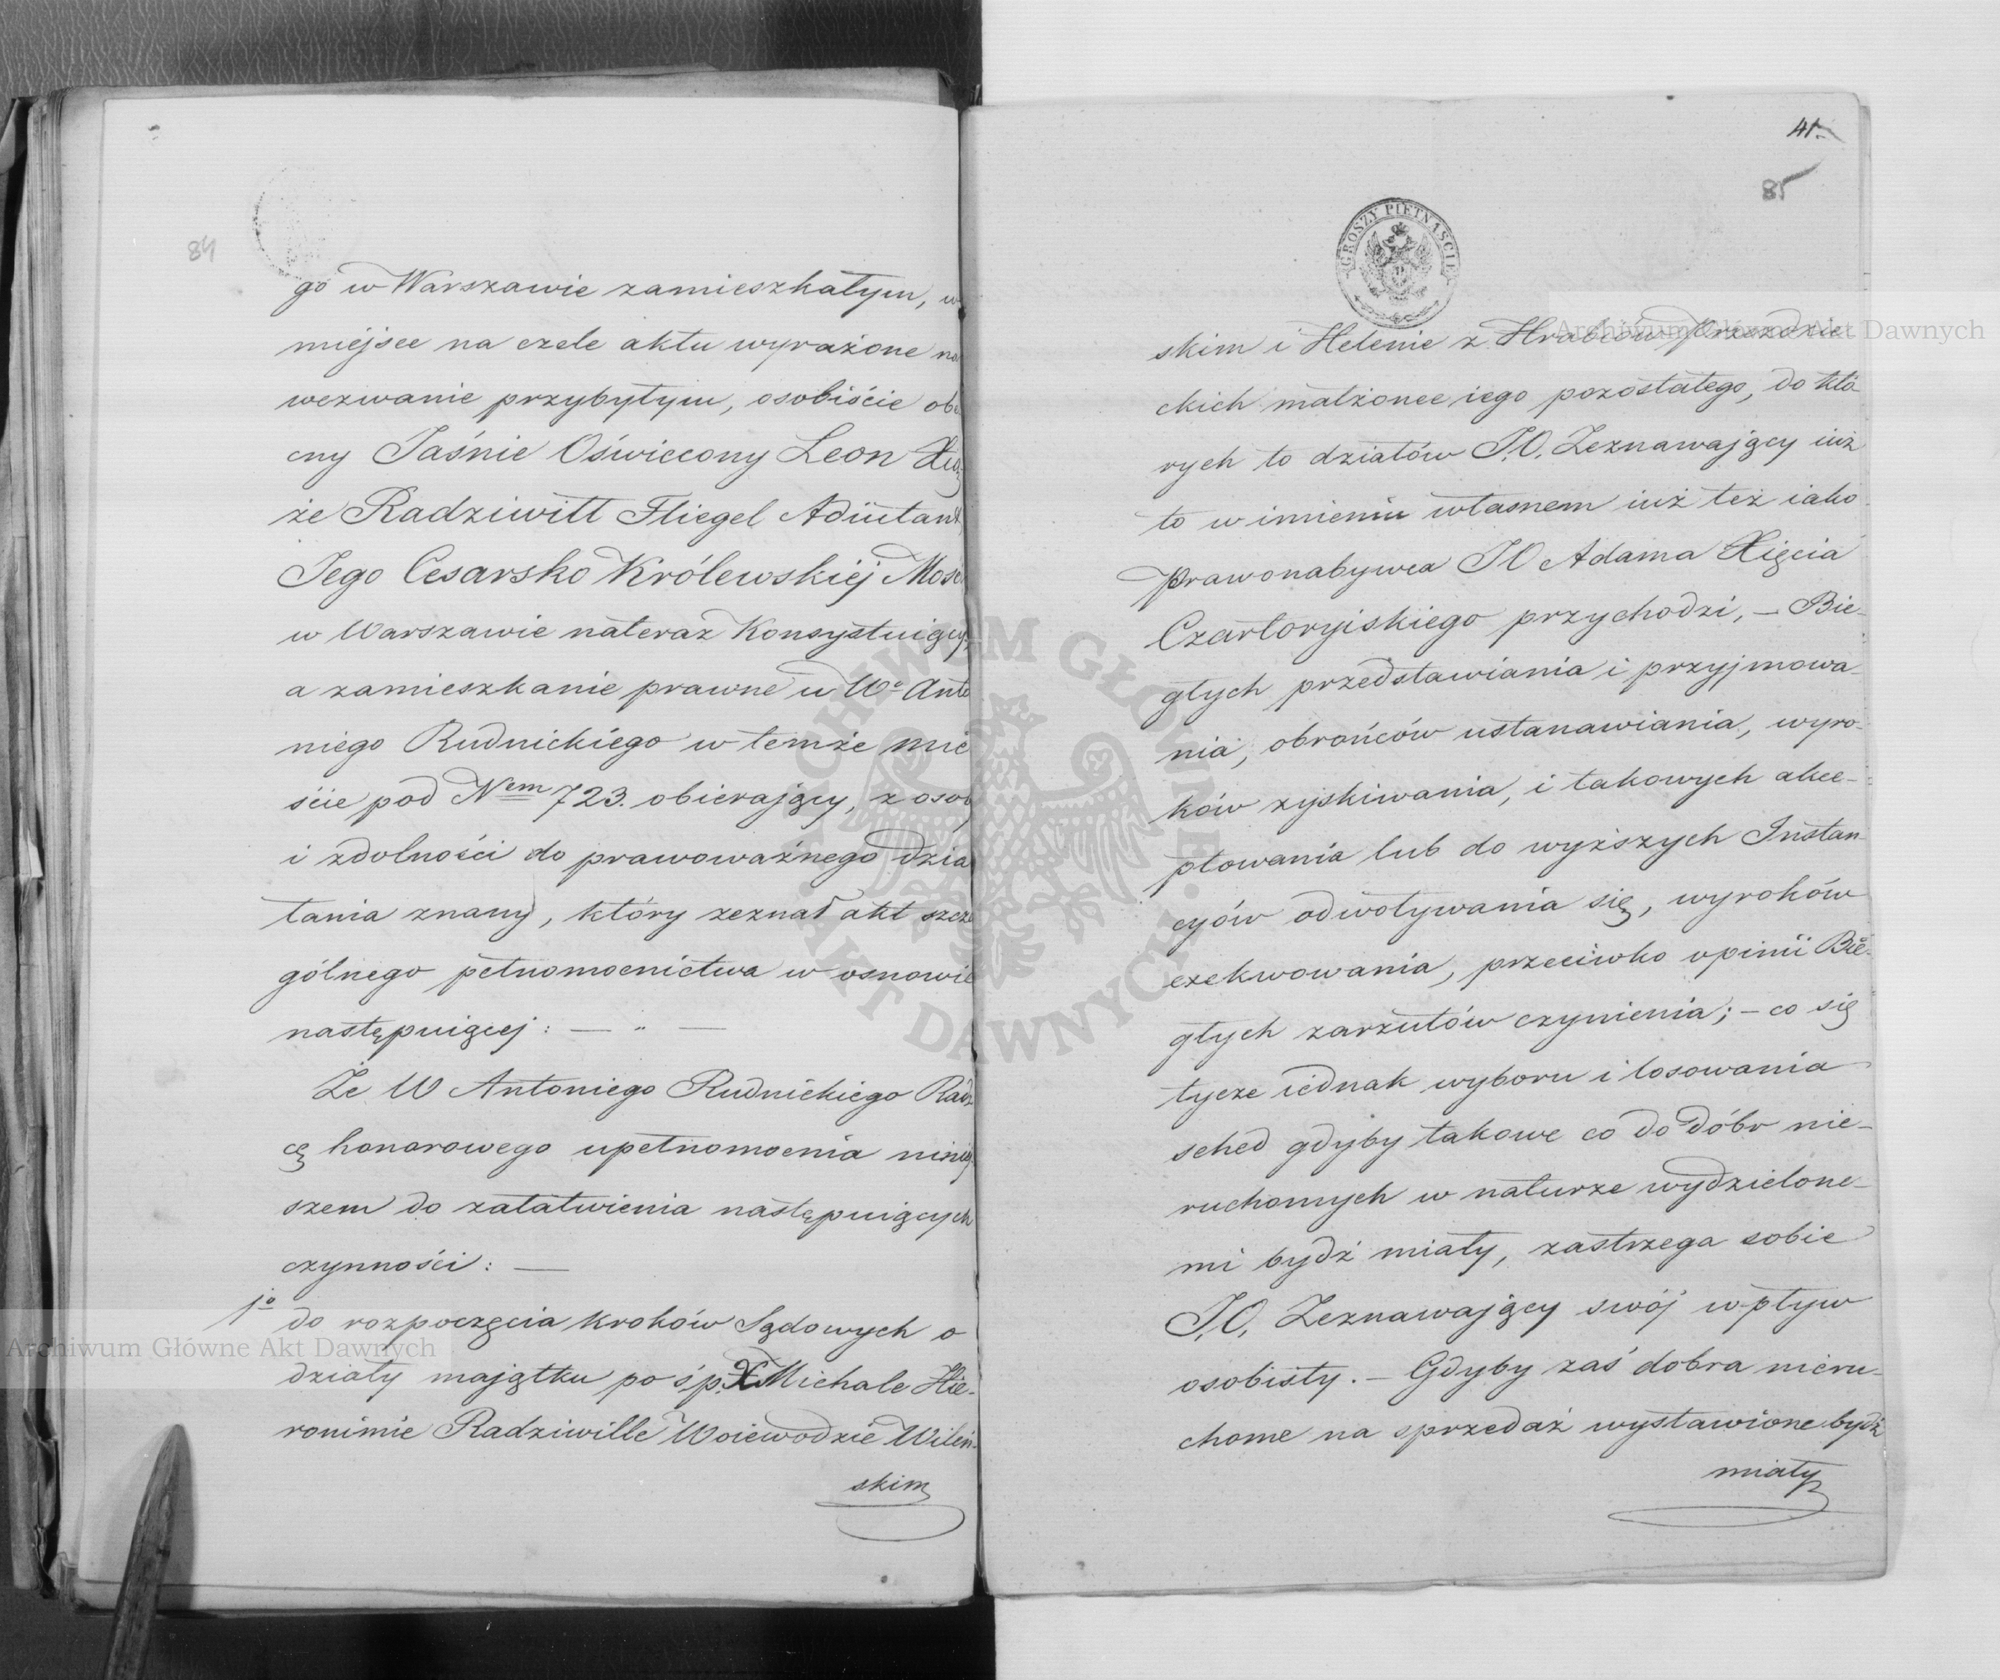 84
go w Warszawie zamieszkałym, w
miejsce na czele aktu wyrażone na
wezwanie przybytym, osobiście obe
cny Jaśnie Oświecony Leon Xią
że Radziwiłł Fliegel Adiutant
Jego Cesarsko Królewskiéj Mości
w Warszawie nateraz Konsystuiący,
a zamieszkanie prawne u Wo Anto
niego Rudnickiego w temże mie
ście pod Nem 723. obierający, z osoby
i zdolności do prawoważnego dzia
łania znany, który zeznał akt szcze
gólnego pełnomocnictwa w osnowie
następuiącej: — „ —
Że W Antoniego Rudnickiego Radz
cę honorowego upełnomocnia niniey
szem do załatwienia następuiących
czynności: —
1o do rozpoczęcia kroków Sądowych o
działy majątku po ś.p. X Michale Hie-
ronimie Radziwille Woiewodzie Wileń-
skim
41.
85
GROSZY PIĘTNAŚCIE
skim i Helenie z Hrabiów Przezdzie-
ckich małżonce iego pozostałego, do któ
rych to działów J.O. Zeznawający iuż
to w imieniu własnem iuż też iako
Prawonabywca JO Adama Xięcia
Czartoryiskiego przychodzi, — Bie-
głych przedstawiania i przyjmowa-
nia, obrońców ustanawiania, wyro-
ków zyskiwania, i takowych akce-
ptowania lub do wyższych Instan
cyów odwoływania się, wyroków
exekwowania, przeciwko opinii Bie-
głych zarzutów czynienia; — co się
tycze iednak wyboru i losowania
sched gdyby takowe co do dóbr nie-
ruchomych w naturze wydzielone-
mi bydź miały, zastrzega sobie
J.O. Zeznawający swój wpływ
osobisty. — Gdyby zaś dobra nieru-
chome na sprzedaż wystawione bydź
miały
Archiwum Główne Akt Dawnych
Archiwum Główne Akt Dawnych
ARCHIWUM GŁÓWNE AKT DAWNYCH